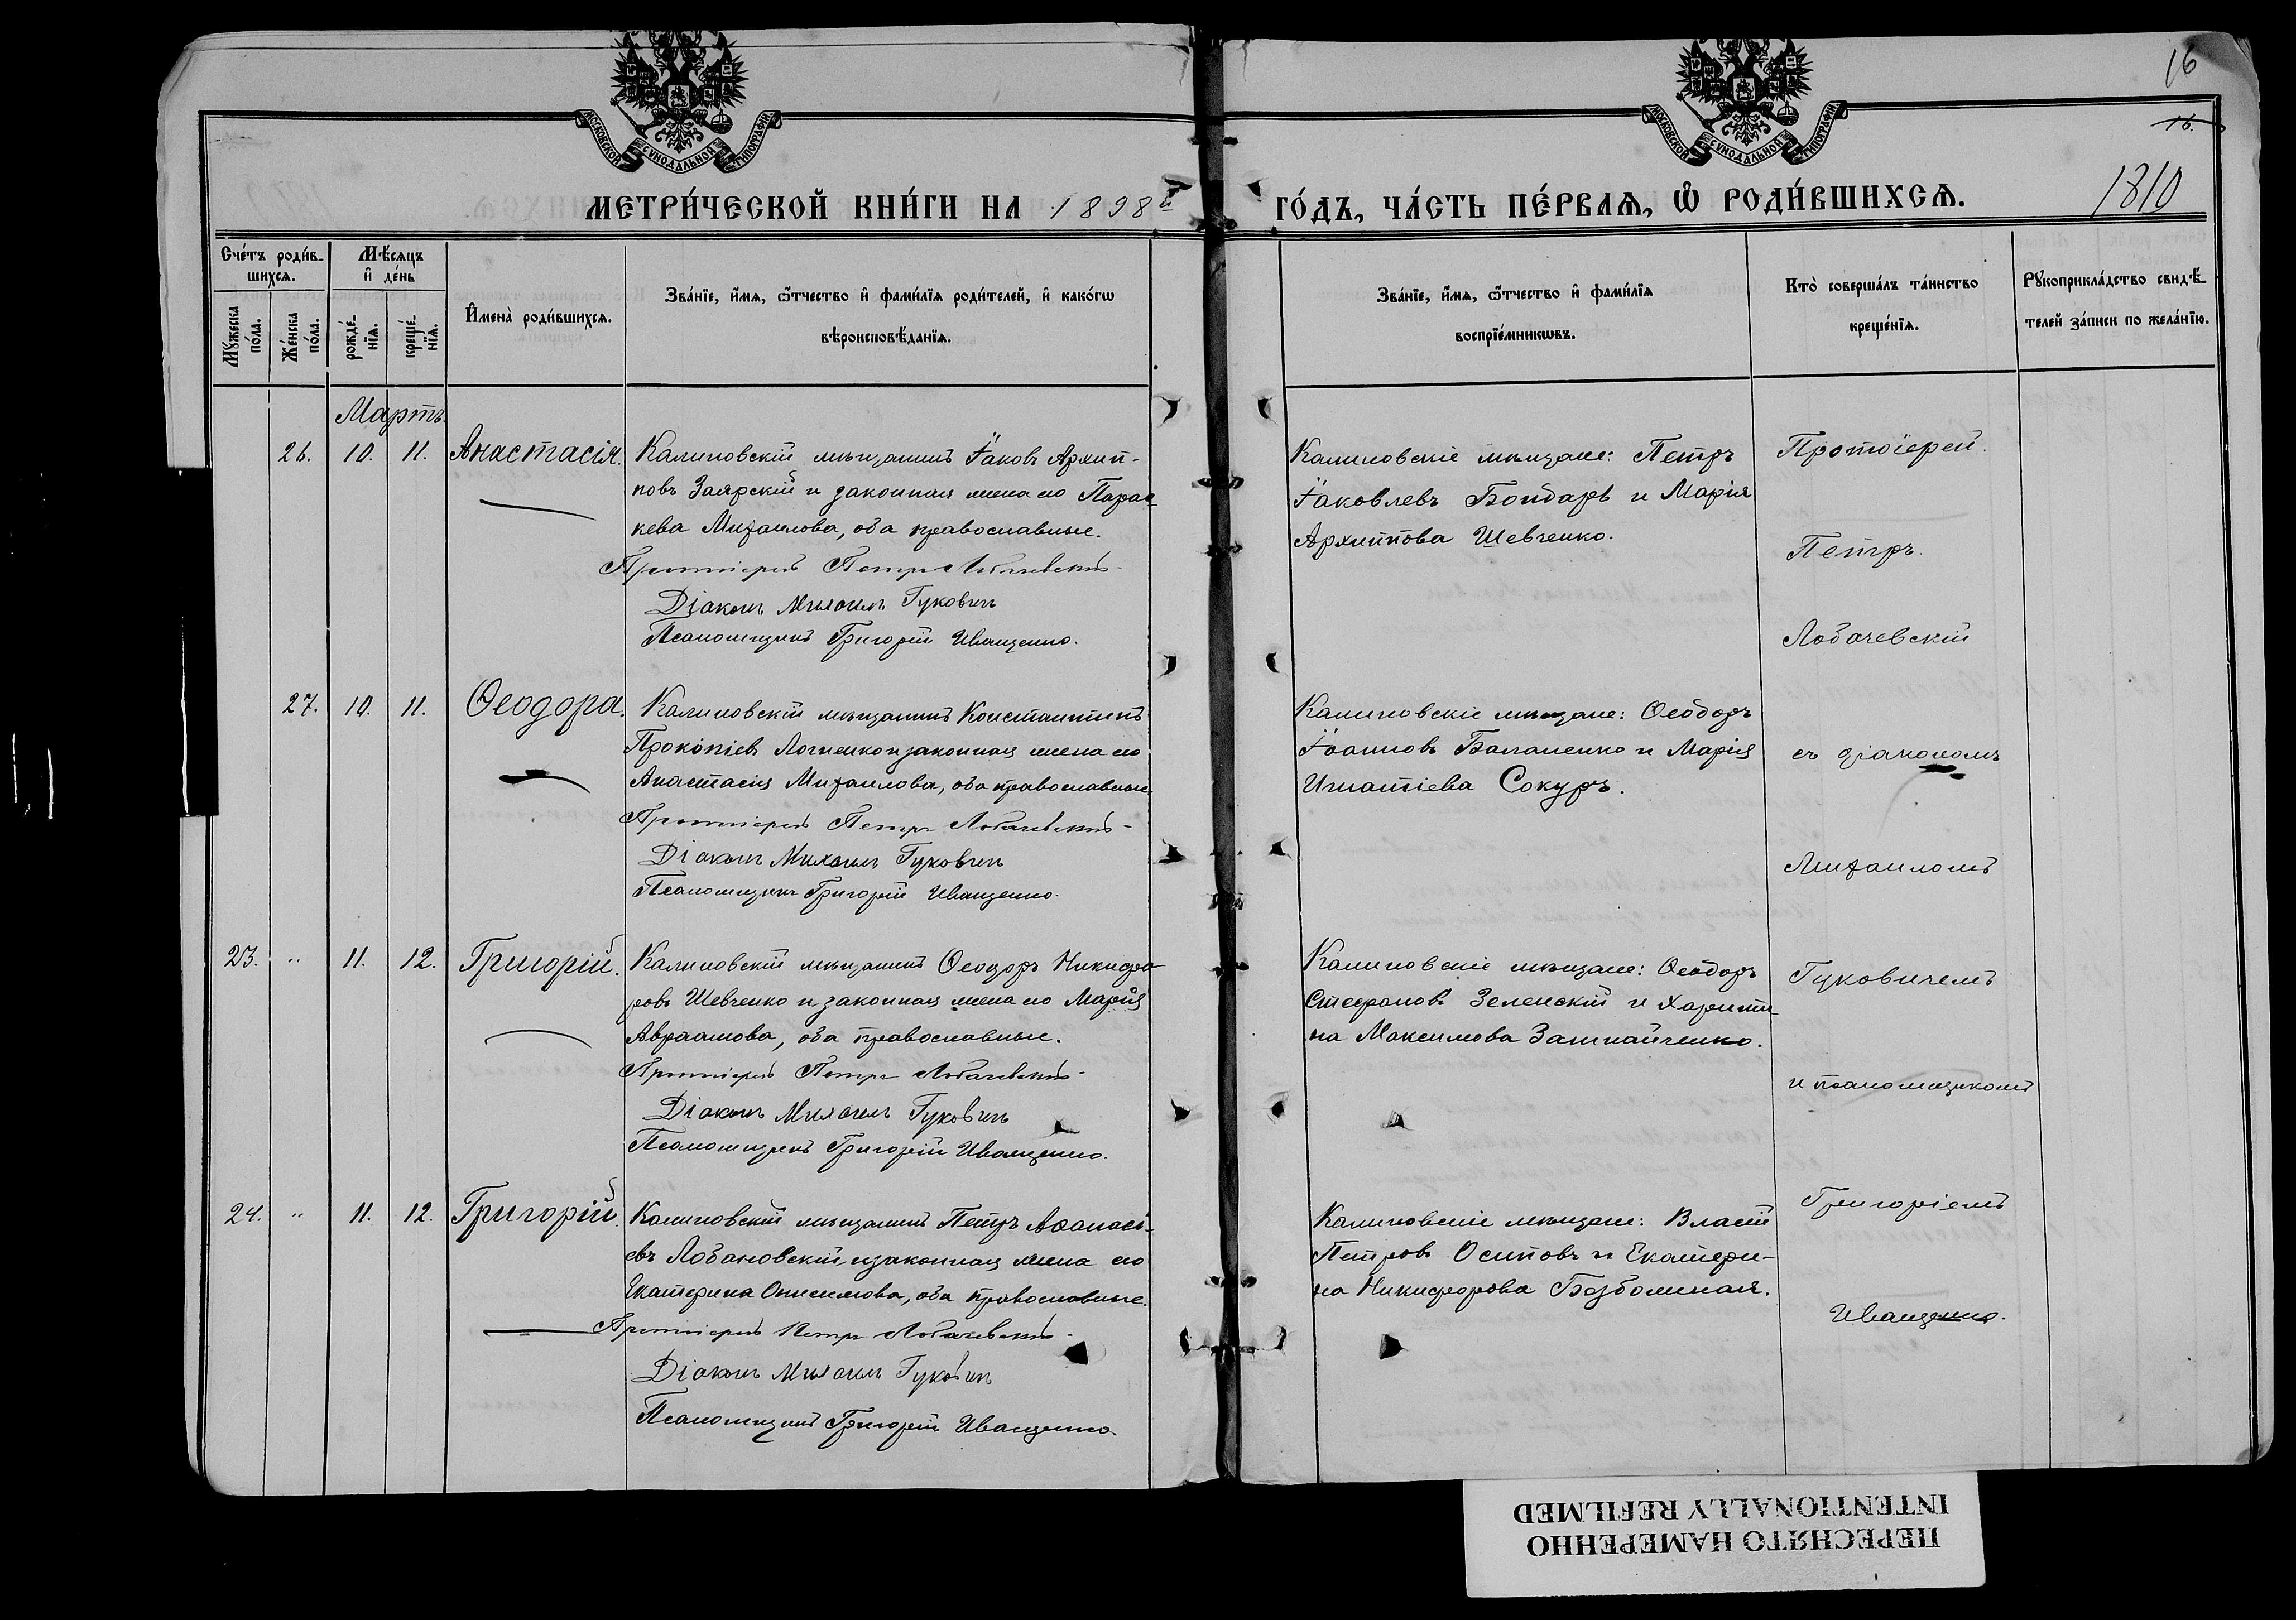 16
16.
1810
МОСКОВСКОЙ СУНОДАЛЬНОЙ ТИПОГРАФІИ
МОСКОВСКОЙ СУНОДАЛЬНОЙ ТИПОГРАФІИ
МЕТРИ́ЧЕСКОЙ КНИ́ГИ НА 1898й
ГО́ДЪ, ЧА́СТЬ ПЕ́РВАѦ, Ѽ РОДИ́ВШИХСѦ.
Сче́тъ роди́в-
шихсѧ.
Мꙋ́жеска
по́ла.
Же́нска
по́ла.
Мѣ́сяцъ
и҆ де́нь
рожде́-
нїѧ.
креще́-
нїѧ.
И҆мена̀ роди́вшихсѧ.
Зва́нїе, и҆́мѧ, ѻ҆́тчество и҆ фами́лїѧ роди́телей, и҆ како́гѡ
вѣроисповѣ́данїѧ.
Зва́нїе, и҆́мѧ, ѻ҆́тчество и҆ фами́лїѧ
воспрїе́мникѡвъ.
Кто̀ соверша́лъ та́инство
креще́нїѧ.
Рꙋкоприкла́дство свидѣ́-
телей за́писи по жела́нїю.
Мартъ.
26. 10. 11. Анастасія.
Калиновскій мѣщанинъ Іаковъ Архип-
повъ Заярскій и законная жена его Парас-
кева Михаилова, оба православные.
Протоіерей Петръ Лобачевскій
Діаконъ Михаилъ Гуковичъ
Псаломщикъ Григорій Иващенко.
Калиновскіе мѣщане: Петръ
Іаковлевъ Бондарь и Марія
Архиппова Шевченко.
27. 10. 11. Ѳеодора.
Калиновскій мѣщанинъ Константинъ
Прокопіевъ Логненко и законная жена его
Анастасія Михаилова, оба православные
Протоіерей Петръ Лобачевскій
Діаконъ Михаилъ Гуковичъ
Псаломщикъ Григорій Иващенко.
Калиновскіе мѣщане: Ѳеодоръ
Іоанновъ Баланенко и Марія
Игнатіева Сокуръ.
23. " 11. 12. Григорій.
Калиновскій мѣщанинъ Ѳеодоръ Никифо-
ровъ Шевченко и законная жена его Марія
Авраамова, оба православные.
Протоіерей Петръ Лобачевскій
Діаконъ Михаилъ Гуковичъ
Псаломщикъ Григорій Иващенко.
Калиновскіе мѣщане: Ѳеодоръ
Стефановъ Зеленскій и Харити-
на Максимова
24. " 11. 12. Григорій.
Калиновскій мѣщанинъ Петръ Аѳанасі-
евъ Лобановскій и законная жена его
Екатерина Онисимова, оба православные.
Протоіерей Петръ Лобачевскій
Діаконъ Михаилъ Гуковичъ
Псаломщикъ Григорій Иващенко.
Калиновскіе мѣщане: Власій
Петровъ Осиповъ и Екатери-
на Никифорова
Протоіерей
Петръ
Лобачевскій
съ діакономъ
Михаиломъ
Гуковичемъ
и псаломщикомъ
Григоріемъ
Иващенко.
ПЕРЕСНЯТО НАМЕРЕННО
INTENTIONALLY REFILMED